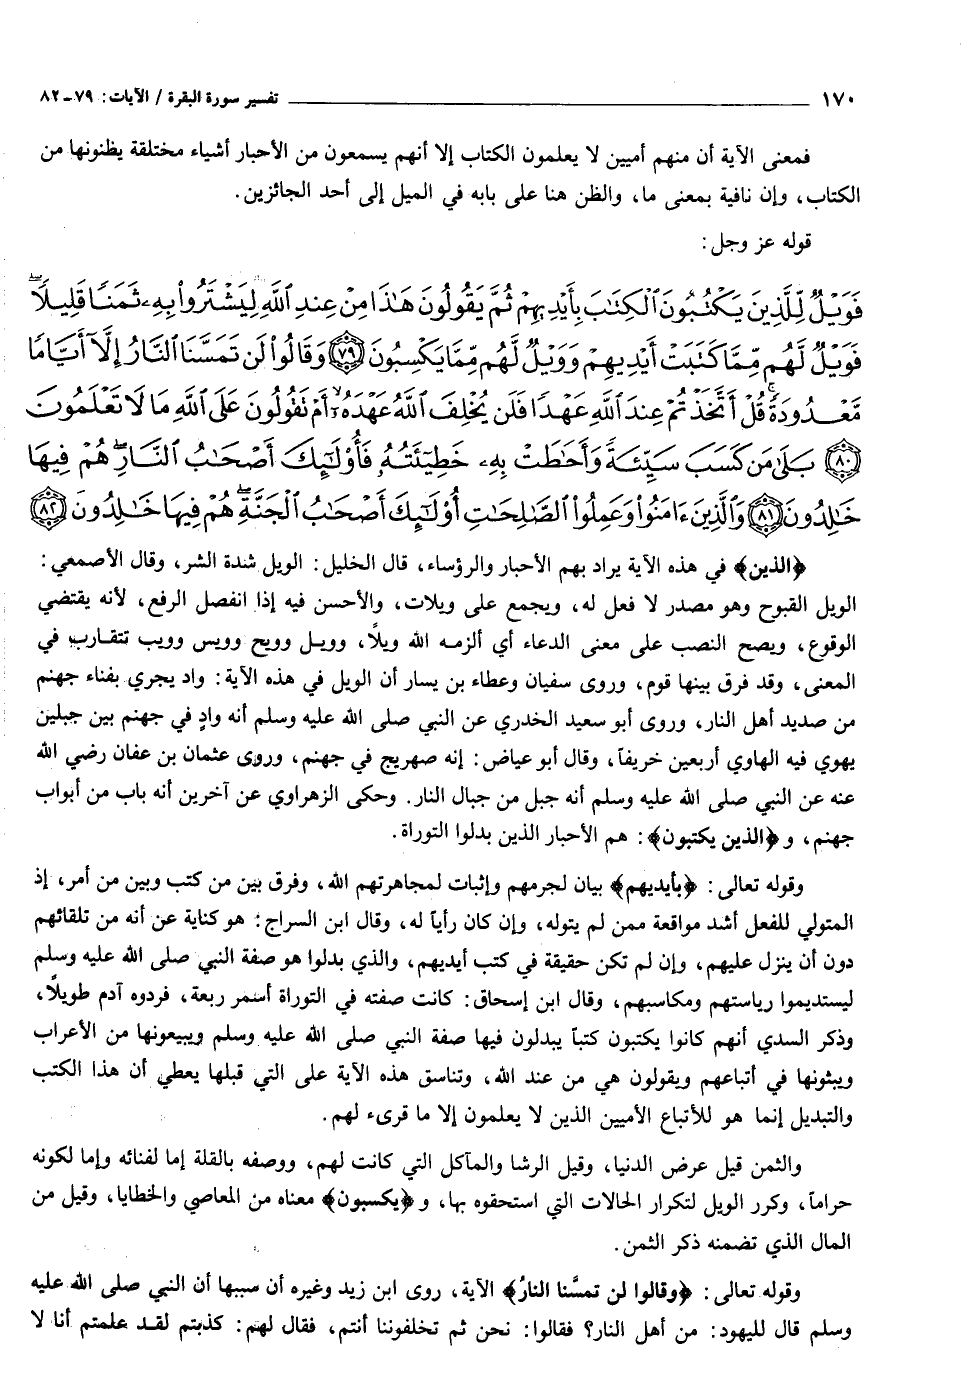 ١٧٠ تفسير سورة البقرة / الآيات: ٧٩-٨٢
فمعنى الآية أن منهم أميين لا يعلمون الكتاب إلا أنهم يسمعون من الأحبار أشياء مختلقة يظنونها من
الكتاب، وإن نافية بمعنى ما، والظن هنا على بابه في الميل إلى أحد الجائزين.
قوله عز وجل:
فَوَيْلٌ لِّلَّذِينَ يَكْتُبُونَ ٱلْكِتَٰبَ بِأَيْدِيهِمْ ثُمَّ يَقُولُونَ هَٰذَا مِنْ عِندِ ٱللَّهِ لِيَشْتَرُوا۟ بِهِۦ ثَمَنًا قَلِيلًا ۖ
فَوَيْلٌ لَّهُم مِّمَّا كَتَبَتْ أَيْدِيهِمْ وَوَيْلٌ لَّهُم مِّمَّا يَكْسِبُونَ ﴿٧٩﴾ وَقَالُوا۟ لَن تَمَسَّنَا ٱلنَّارُ إِلَّآ أَيَّامًا
مَّعْدُودَةً ۚ قُلْ أَتَّخَذْتُمْ عِندَ ٱللَّهِ عَهْدًا فَلَن يُخْلِفَ ٱللَّهُ عَهْدَهُۥٓ ۖ أَمْ نَقُولُونَ عَلَى ٱللَّهِ مَا لَا تَعْلَمُونَ
﴿٨٠﴾ بَلَىٰ مَن كَسَبَ سَيِّئَةً وَأَحَٰطَتْ بِهِۦ خَطِيٓـَٔتُهُۥ فَأُو۟لَٰٓئِكَ أَصْحَٰبُ ٱلنَّارِ ۖ هُمْ فِيهَا
خَٰلِدُونَ ﴿٨١﴾ وَٱلَّذِينَ ءَامَنُوا۟ وَعَمِلُوا۟ ٱلصَّٰلِحَٰتِ أُو۟لَٰٓئِكَ أَصْحَٰبُ ٱلْجَنَّةِ ۖ هُمْ فِيهَا خَٰلِدُونَ ﴿٨٢﴾
﴿الذين﴾ في هذه الآية يراد بهم الأحبار والرؤساء، قال الخليل: الويل شدة الشر، وقال الأصمعي:
الويل القبوح وهو مصدر لا فعل له، ويجمع على ويلات، والأحسن فيه إذا انفصل الرفع، لأنه يقتضي
الوقوع، ويصح النصب على معنى الدعاء أي ألزمه الله ويلاً، وويل وويح وويس وويب تتقارب في
المعنى، وقد فرق بينها قوم، وروى سفيان وعطاء بن يسار أن الويل في هذه الآية: واد يجري بفناء جهنم
من صديد أهل النار، وروى أبو سعيد الخدري عن النبي صلى الله عليه وسلم أنه وادٍ في جهنم بين جبلين
يهوي فيه الهاوي أربعين خريفاً، وقال أبو عياض: إنه صهريج في جهنم، وروى عثمان بن عفان رضي الله
عنه عن النبي صلى الله عليه وسلم أنه جبل من جبال النار. وحكى الزهراوي عن آخرين أنه باب من أبواب
جهنم، و﴿الذين يكتبون﴾: هم الأحبار الذين بدلوا التوراة.
وقوله تعالى: ﴿بأيديهم﴾ بيان لجرمهم وإثبات لمجاهرتهم الله، وفرق بين من كتب وبين من أمر، إذ
المتولي للفعل أشد مواقعة ممن لم يتوله، وإن كان رأياً له، وقال ابن السراج: هو كناية عن أنه من تلقائهم
دون أن ينزل عليهم، وإن لم تكن حقيقة في كتب أيديهم، والذي بدلوا هو صفة النبي صلى الله عليه وسلم
ليستديموا رياستهم ومكاسبهم، وقال ابن إسحاق: كانت صفته في التوراة أسمر ربعة، فردوه آدم طويلاً،
وذكر السدي أنهم كانوا يكتبون كتباً يبدلون فيها صفة النبي صلى الله عليه وسلم ويبيعونها من الأعراب
ويبثونها في أتباعهم ويقولون هي من عند الله، وتناسق هذه الآية على التي قبلها يعطي أن هذا الكتب
والتبديل إنما هو للأتباع الأميين الذين لا يعلمون إلا ما قرىء لهم.
والثمن قيل عرض الدنيا، وقيل الرشا والمآكل التي كانت لهم، ووصفه بالقلة إما لفنائه وإما لكونه
حراماً، وكرر الويل لتكرار الحالات التي استحقوه بها، و﴿يكسبون﴾ معناه من المعاصي والخطايا، وقيل من
المال الذي تضمنه ذكر الثمن.
وقوله تعالى: ﴿وقالوا لن تمسَّنا النارُ﴾ الآية، روى ابن زيد وغيره أن سببها أن النبي صلى الله عليه
وسلم قال لليهود: من أهل النار؟ فقالوا: نحن ثم تخلفوننا أنتم، فقال لهم: كذبتم لقد علمتم أنا لا